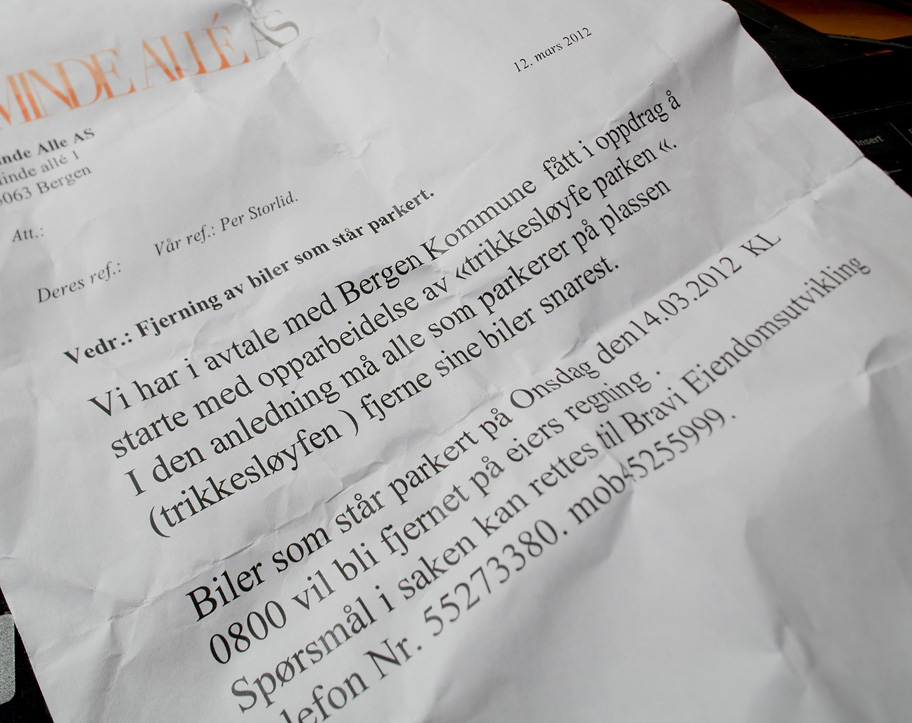 MINDE ALLÉ AS
12. mars 2012
nde Alle AS
inde allé 1
063 Bergen
Att.:
Deres ref.: Vår ref.: Per Storlid.
Vedr.: Fjerning av biler som står parkert.
Vi har i avtale med Bergen Kommune fått i oppdrag å
starte med opparbeidelse av «trikkesløyfe parken «.
I den anledning må alle som parkerer på plassen
(trikkesløyfen ) fjerne sine biler snarest.
Biler som står parkert på Onsdag den14.03.2012 KL
0800 vil bli fjernet på eiers regning .
Spørsmål i saken kan rettes til Bravi Eiendomsutvikling
lefon Nr. 55273380. mob45255999.
Insert